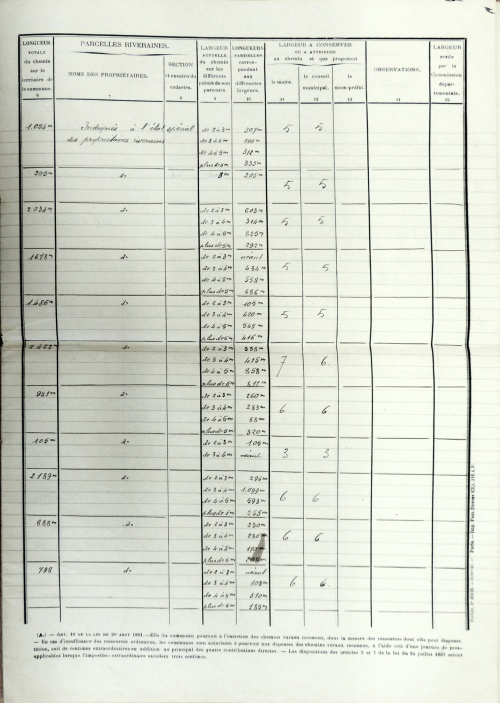 LONGUEUR TOTALE du chemin sur le territoire de la commune. 6
PARCELLES RIVERAINES.
NOMS DES PROPRIÉTAIRES. 7
SECTION et numéro du cadastre. 8
LARGEUR ACTUELLE du chemin sur les différents points de son parcours. 9
LONGUEURS PARTIELLES correspondant aux différentes largeurs. 10
LARGEUR A CONSERVER OU A ATTRIBUER au chemin et que proposent
le maire. 11
le conseil municipal. 12
le sous-préfet 13
OBSERVATIONS. 14
LARGEUR votée par la Commission départementale. 15
1.094m Indiqués à l'état spécial de 2 à 3m 307m 5 5
des propriétaires riverains de 3 à 4m
de 4 à 5m
plus de 5m 335m
205m d° 3m 205m
5 5
2.034m d° de 2 à 3m 603m
de 3 à 4m 314m 5 5
de 4 à 5m 825m
plus de 5m 292m
1678m d° de 2 à 3m néant
de 3 à 4m 434m 5 5
de 4 à 5m 558m
plus de 5m 686m
1.486m d° de 2 à 3m 105m
de 3 à 4m 420m 5 5
de 4 à 5m 545m
plus de 5m 416m
d° de 2 à 3m 338m
de 3 à 4m 415m 7 6
de 4 à 5m 858m
plus de 5m 811m
951m d° de 2 à 3m 260m
de 3 à 4m 283m 6 6
de 4 à 5m 88m
plus de 5m 320m
105m d° de 2 à 3m 105m
de 3 à 4m néant 3 3
2.189m d° de 2 à 3m 294m
de 3 à 4m 1.099m
de 4 à 5m 593m 6 6
plus de 5m
688m d° de 2 à 3m 230m
de 3 à 4m 280m 6 6
de 4 à 5m
plus de 5m
798 d° de 2 à 3m néant
de 3 à 4m 103m 6 6
de 4 à 5m 510m
plus de 5m 185m
(A.) — ART. 10 DE LA LOI DU 20 AOUT 1881. — Elle (la commune) pourvoit à l'entretien des chemins ruraux reconnus, dans la mesure des ressources dont elle peut disposer.
— En cas d'insuffisance des ressources ordinaires, les communes sont autorisées à pourvoir aux dépenses des chemins ruraux reconnus, à l'aide soit d'une journée de prestation, soit de centimes extraordinaires en addition au principal des quatre contributions directes. — Les dispositions des articles 5 et 7 de la loi du 24 juillet 1867 seront
applicables lorsque l'imposition extraordinaire excédera trois centimes.